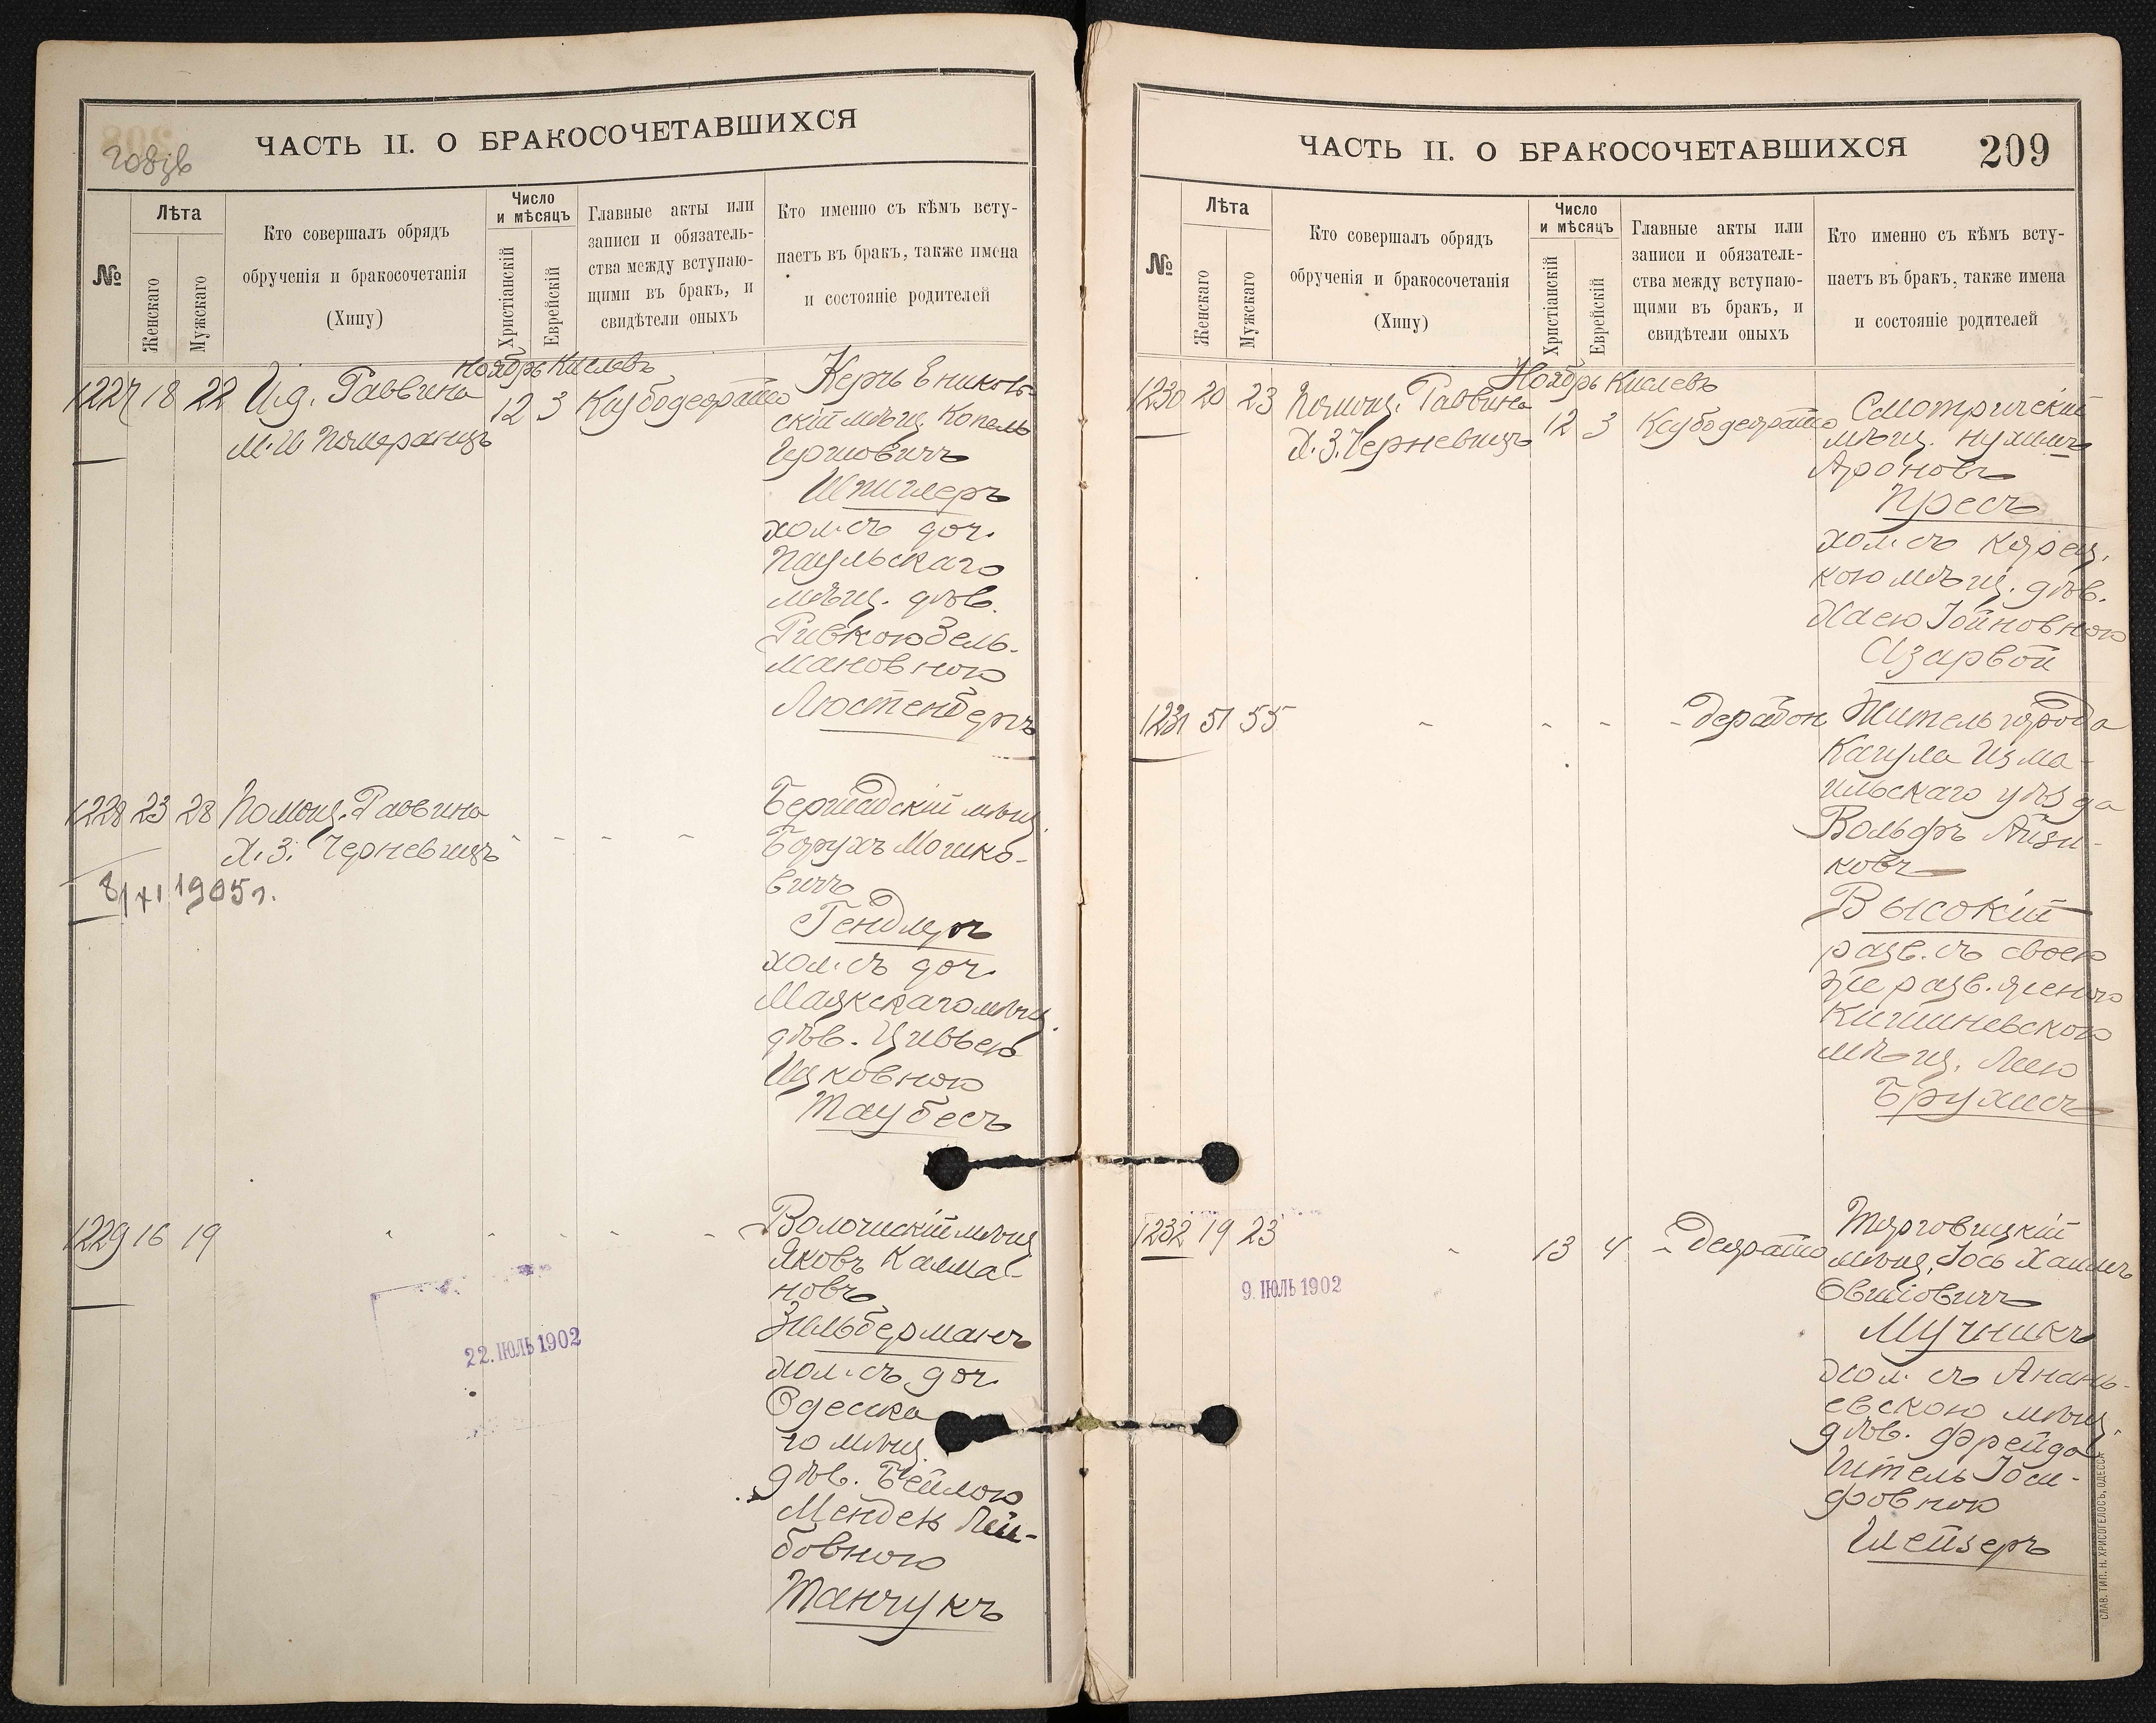 208 зв
ЧАСТЬ II. О БРАКОСОЧЕТАВШИХСЯ
№
Лѣта
Женскаго
Мужскаго
Кто совершалъ обрядъ
обрученія и бракосочетанія
(Хипу)
Число
и мѣсяцъ
Христіанскій
Еврейскій
Главные акты или
записи и обязатель-
ства между вступаю-
щими въ бракъ, и
свидѣтели оныхъ
Кто именно съ кѣмъ всту-
паетъ въ бракъ, также имена
и состояніе родителей
Ноябрь Кислевъ
1227 18 22 И.д. Раввина
М. И. Померанцъ
12 3
Керчь Еніколь-
скій мѣщ. Копель
Гершовичъ
Шпиглеръ
хол. съ доч.
мѣщ. дѣв.
Ривкою Зель-
мановною
Люстенбергъ
1228 23 28 Помощ. Раввина
Х. З. Черневицъ
8/XI 1905 г.
Бершадскій мѣщ.
Борухъ Мошко-
вичъ
Гендлеръ
хол. съ доч.
Маякскаго мѣщ.
дѣв. Цивьею
Ицковною
Таубесъ
1229 16 19
Волочискій мѣщ.
Яковъ Калма-
новъ
Зильберманъ
хол. съ доч.
Одесска
го мѣщ.
дѣв. Бейлою
Мендель Лей-
бовною
Танчукъ
22. ІЮЛЬ 1902
ЧАСТЬ II. О БРАКОСОЧЕТАВШИХСЯ 209
№
Лѣта
Женскаго
Мужскаго
Кто совершалъ обрядъ
обрученія и бракосочетанія
(Хипу)
Число
и мѣсяцъ
Христіанскій
Еврейскій
Главные акты или
записи и обязатель-
ства между вступаю-
щими въ бракъ, и
свидѣтели оныхъ
Кто именно съ кѣмъ всту-
паетъ въ бракъ, также имена
и состояніе родителей
Ноябрь Кислевъ
1230 20 23 Помощ. Раввина
Х. З. Черневицъ
12 3
Смотричскій
мѣщ. Нухимъ
Ароновъ
Пресъ
хол. съ Корец.
кою мѣщ. дѣв.
Хаею Іойновною
Азарвой
1231 51 55
Житель города
Кагула Изма-
ильскаго уѣзда
Вольфъ Айзи-
ковъ
Высокій
разв. съ своею
же разв. женою
Кишиневскою
мѣщ. Леею
Брухисъ
1232 19 23
13 4
Торговицкій
мѣщ. Іось Хаимъ
Овшіовичъ
Мучникъ
хол. съ Анань-
евскою мѣщ.
дѣв. Фрейда
Гитель Іоси-
фовною
Шейзеръ
9. ІЮЛЬ 1902
СЛАВ. ТИП. Н. ХРИСОГЕЛОСЪ, ОДЕССА